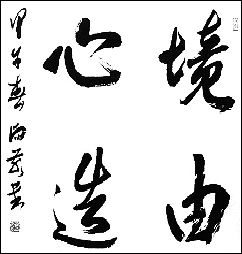 境由
心造
甲午春